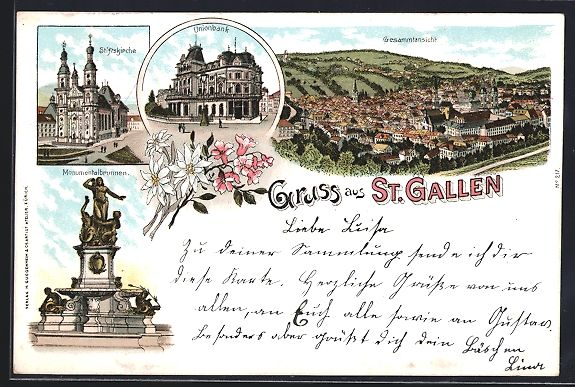 Stiftskirche
Unionbank
Gesammtansicht
Monumentalbrunnen.
Gruss aus ST. GALLEN
Nº 217.
Liebe Luisa
Zu deiner Sammlung sende ich dir
diese Karte. Herzliche Grüße von uns
allen, an Euch alle sowie an Gustav,
besonders aber grüßt dich dein Bäschen
Lina